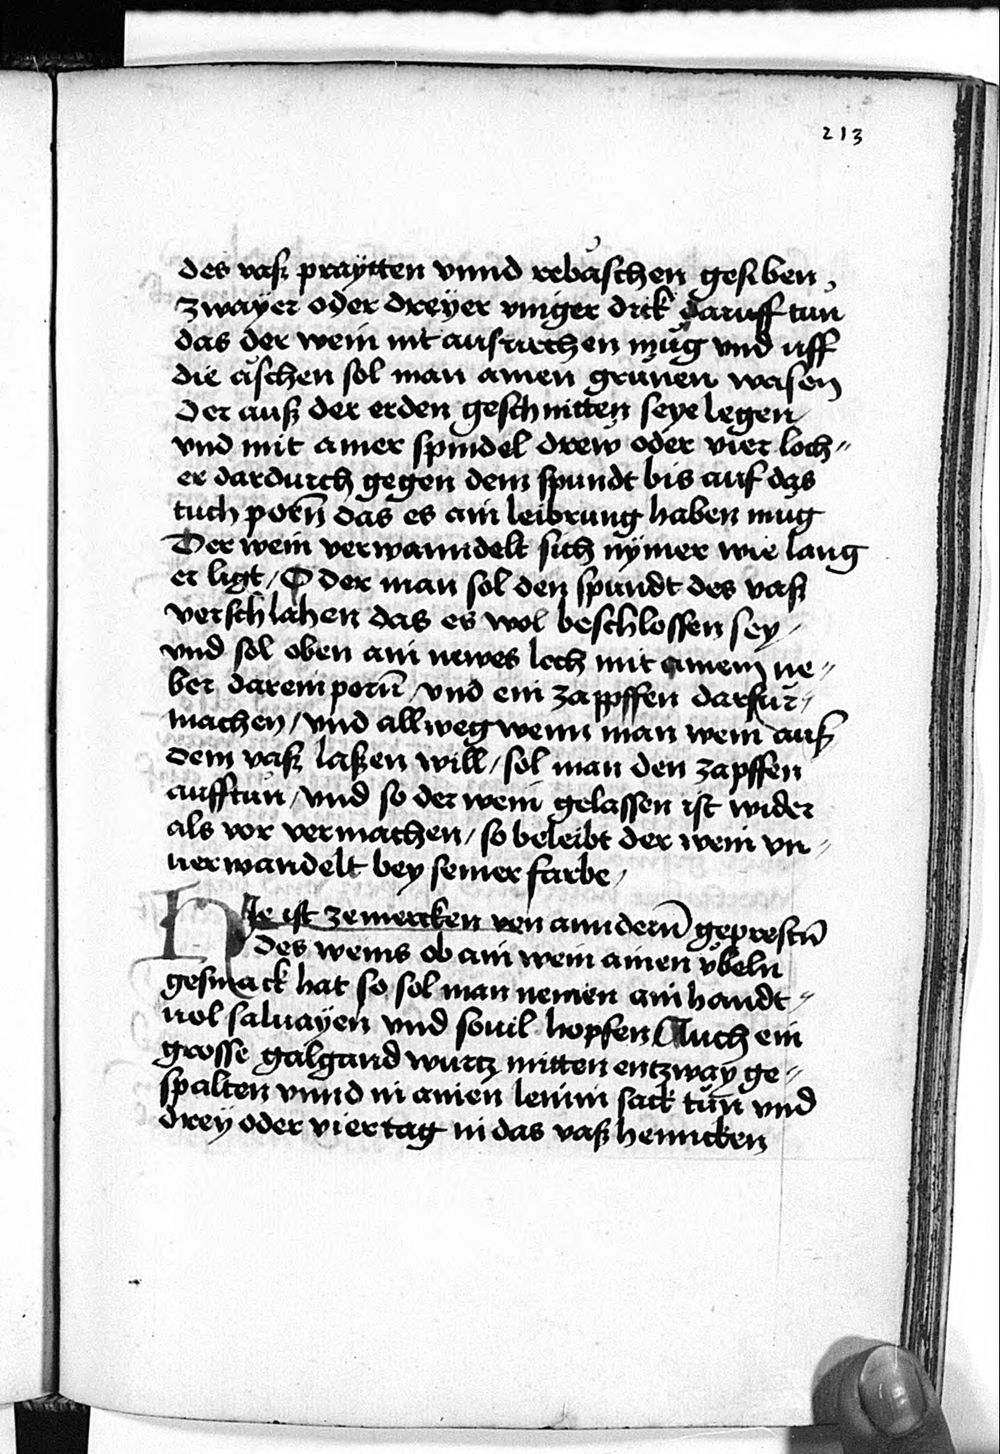 213
des vaß praÿtten vnnd rebåschen gesiben
zwaÿer oder dreÿer vinger dick daruff tůn
das der wein nit ausriechen můg vnd uff
die åschen sol man ainen grůnen wasen
Der auß der erden geschnitten seye legen
vnd mit ainer spindel drew oder vier loch〃
er dardurch gegen dem spundt bis auf das
tuch porn̄ das es ain leibrung haben mug
Der wein verwanndelt sich nÿmer wie lang
er ligt / Oder man sol den spundt des vaß
verschlahen das es wol beschlossen sey /
vnd sol oben ain newes loch mit ainem ne〃
ber darein porn̄ / vnd ein zappffen darfur〃
machen / vnd allweg wenn man wein auß
dem vaß laßen will / sol man den zapffen
aufftůn / vnd so der wein gelassen ist wider
als vor vermachen / so beleibt der wein vn〃
uerwandelt bey seiner farbe /
Hie ist zemercken von anndern̄ geprestn̄
des weins ob ain wein ainen vbeln
gesmack hat so sol man nemen ain handt〃
uol saluaÿen vnd souil hopfen Auch ein
grosse galgand wurtz mitten entzway ge〃
spalten vnnd in ainen leinin sack tůn vnd
dreÿ oder vier tag in das vaß henncken